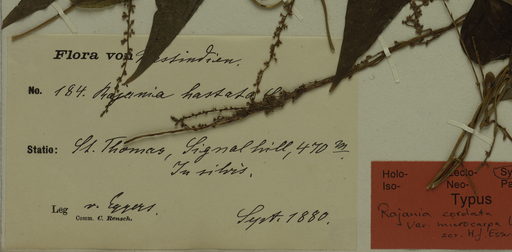 Flora von Westindien.
No. 184. Rajania hastata
Statio: St. Thomas, Signal hill, 470 m
In silvis.
Leg v. Eggers.
Comm. C. Rensch.
Sept. 1880.
Holo- Lecto- Sy
Iso- Neo- Pa
Typus
Rajania cordata
var. microcarpa